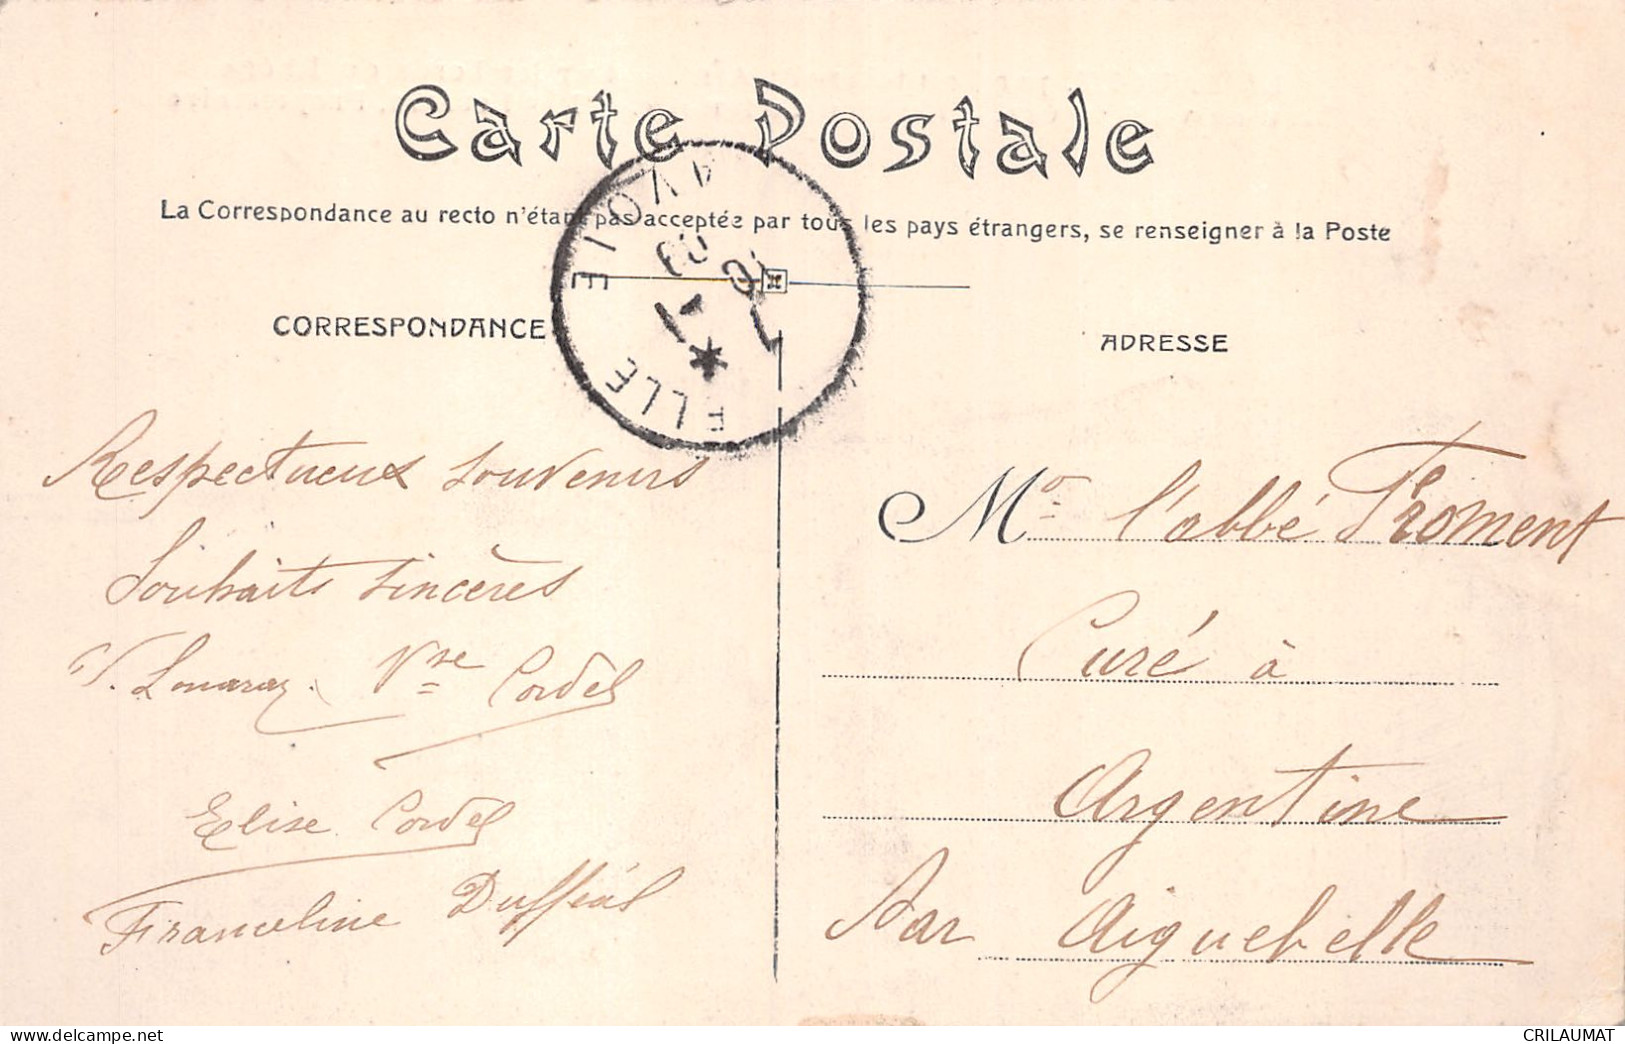 Carte Postale
La Correspondance au recto n'étant pas acceptée par tous les pays étrangers, se renseigner à la Poste
CORRESPONDANCE
ADRESSE
ELLE
*
VOIE
09
Respectueux souvenirs
Souhaits sincères
Louaraz. Vve Cordel
Elise Cordel
Franceline Dufféal
Mr l'abbé Froment
Curé à
Argentine
Par Aiguebelle
www.delcampe.net
CRILAUMAT